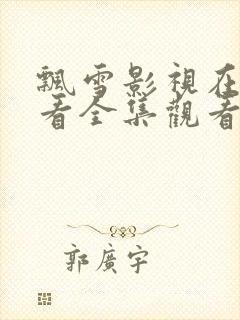 飄雪影視在
看全集觀看
郭廣宇